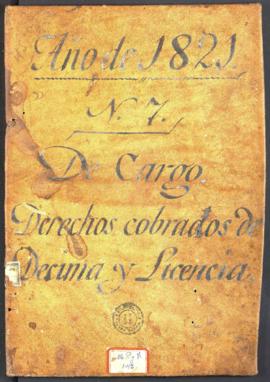 Año de 1821.
N. 7.
De Cargo,
Derechos cobrados de
Decima y Licencia.